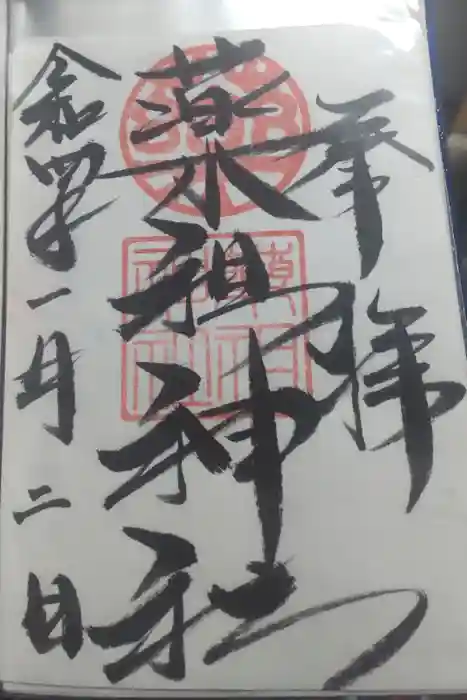 奉拝
薬祖神社
令和四年一月二日